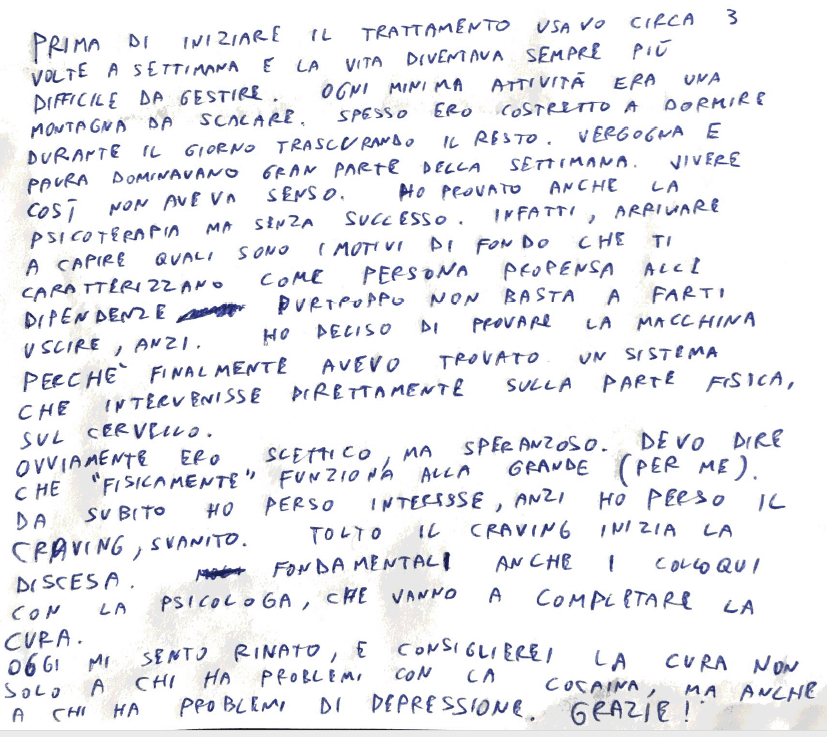 PRIMA DI INIZIARE IL TRATTAMENTO USAVO CIRCA 3
VOLTE A SETTIMANA E LA VITA DIVENTAVA SEMPRE PIÙ
DIFFICILE DA GESTIRE. OGNI MINIMA ATTIVITÀ ERA UNA
MONTAGNA DA SCALARE. SPESSO ERO COSTRETTO A DORMIRE
DURANTE IL GIORNO TRASCURANDO IL RESTO. VERGOGNA E
PAURA DOMINAVANO GRAN PARTE DELLA SETTIMANA. VIVERE
COSÌ NON AVEVA SENSO. HO PROVATO ANCHE LA
PSICOTERAPIA MA SENZA SUCCESSO. INFATTI, ARRIVARE
A CAPIRE QUALI SONO I MOTIVI DI FONDO CHE TI
CARATTERIZZANO COME PERSONA PROPENSA ALLE
DIPENDENZE PURTROPPO NON BASTA A FARTI
USCIRE, ANZI. HO DECISO DI PROVARE LA MACCHINA
PERCHÈ FINALMENTE AVEVO TROVATO UN SISTEMA
CHE INTERVENISSE DIRETTAMENTE SULLA PARTE FISICA,
SUL CERVELLO.
OVVIAMENTE ERO SCETTICO, MA SPERANZOSO. DEVO DIRE
CHE "FISICAMENTE" FUNZIONA ALLA GRANDE (PER ME).
DA SUBITO HO PERSO INTERESSE, ANZI HO PERSO IL
CRAVING, SVANITO. TOLTO IL CRAVING INIZIA LA
DISCESA. FONDAMENTALI ANCHE I COLLOQUI
CON LA PSICOLOGA, CHE VANNO A COMPLETARE LA
CURA.
OGGI MI SENTO RINATO, E CONSIGLIEREI LA CURA NON
SOLO A CHI HA PROBLEMI CON LA COCAINA, MA ANCHE
A CHI HA PROBLEMI DI DEPRESSIONE. GRAZIE!